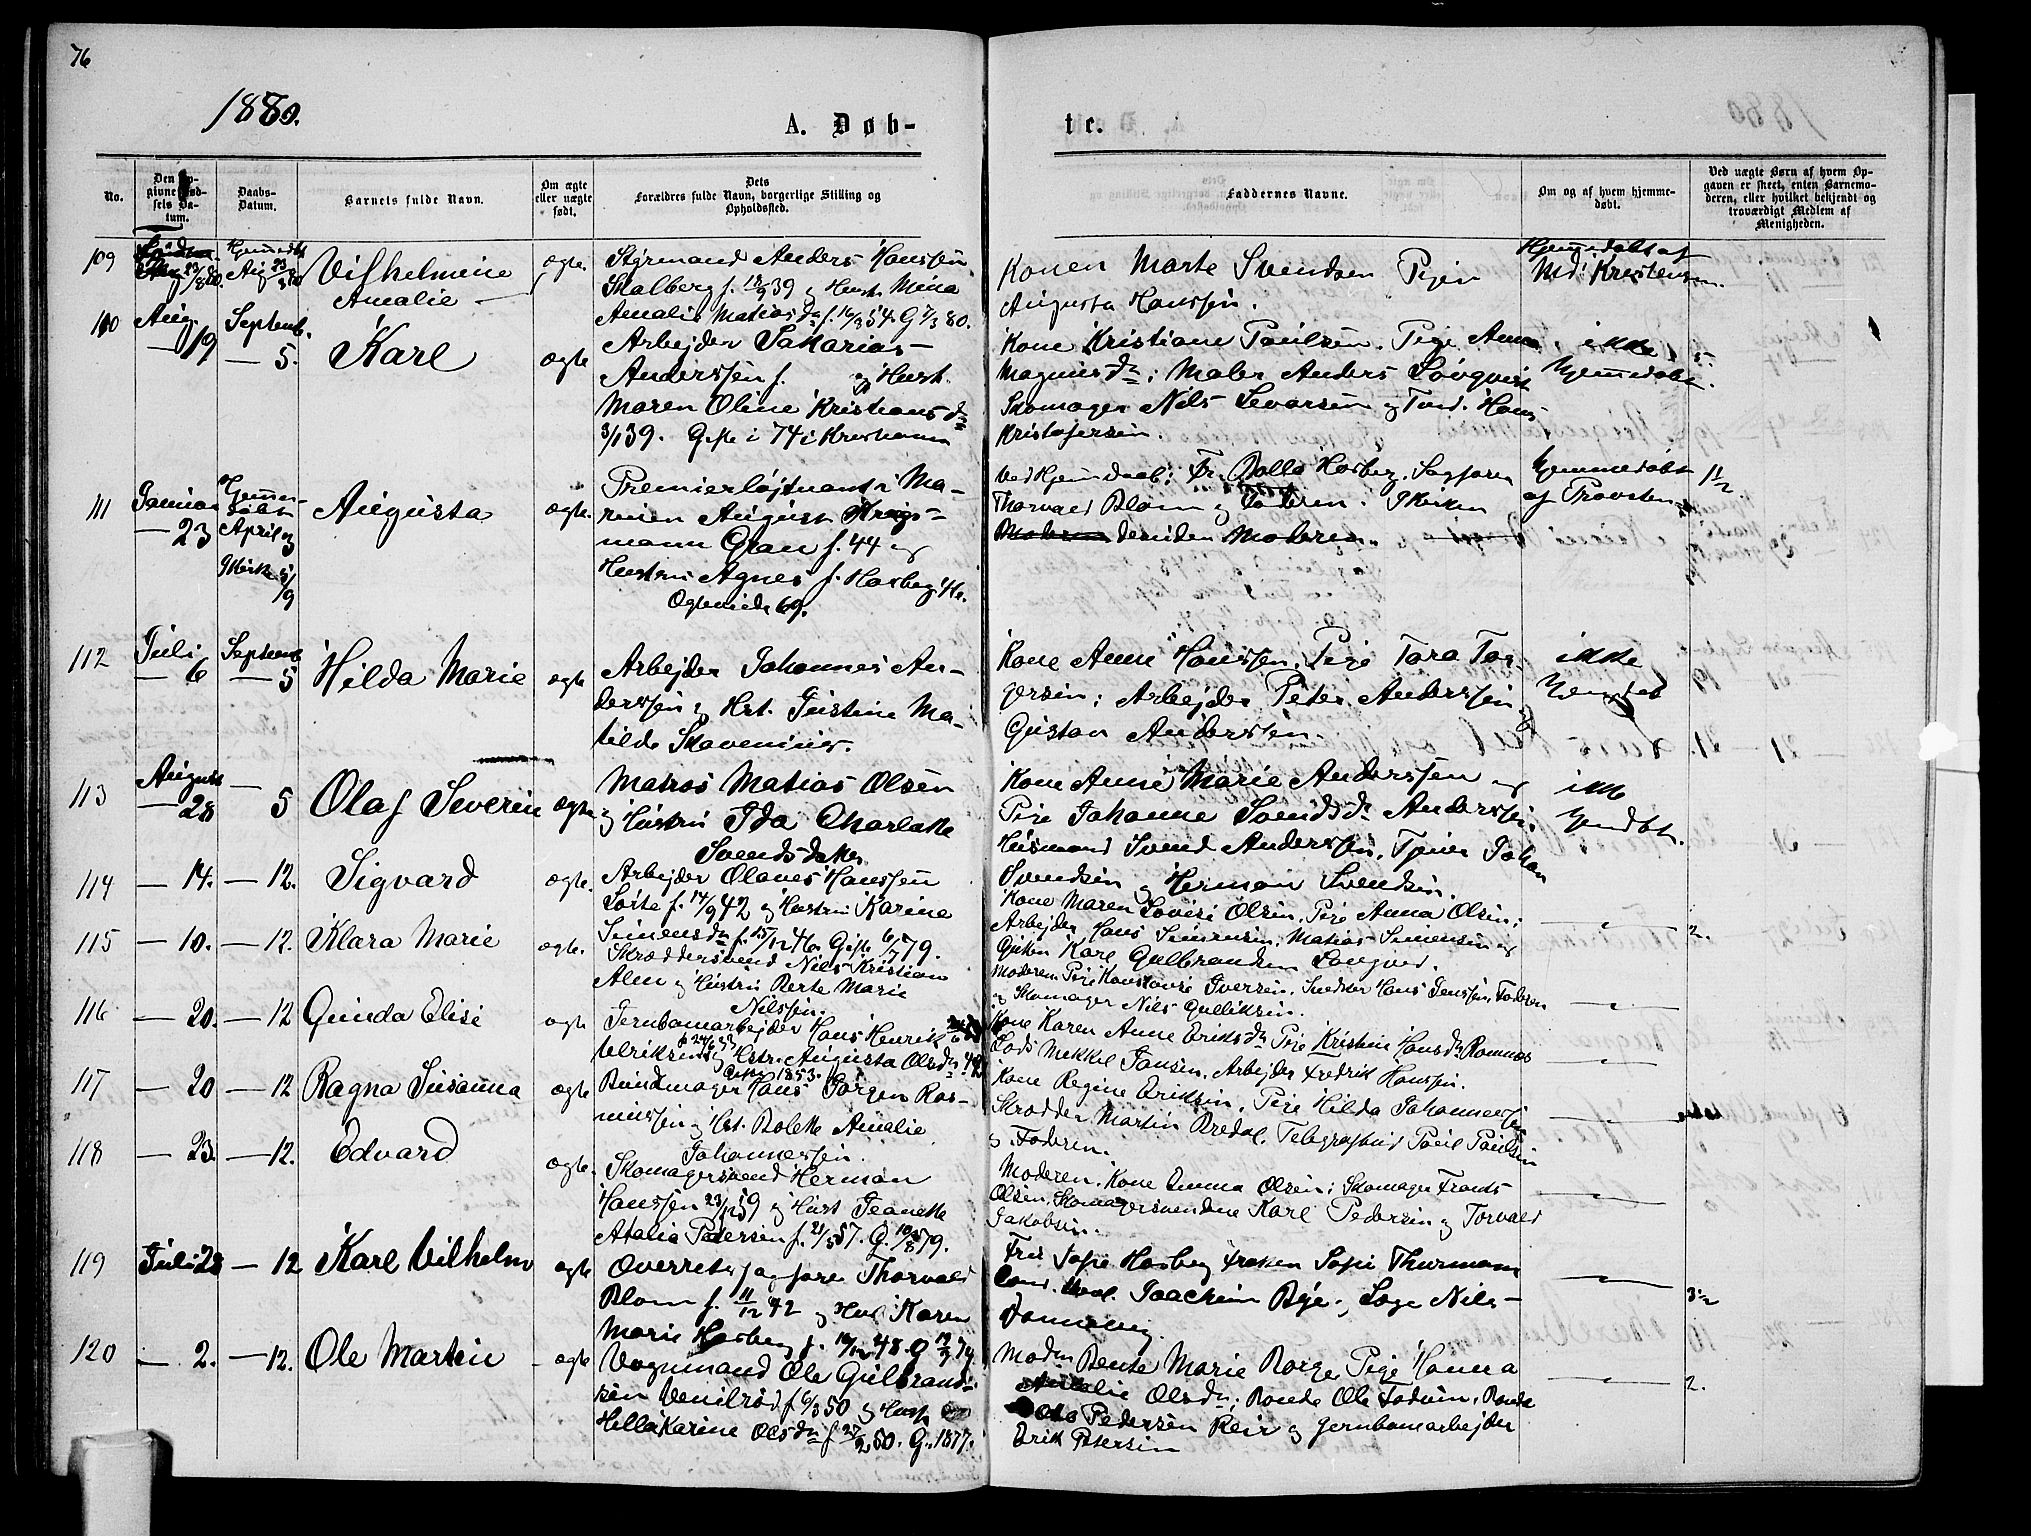 76
1880.
A. Døb-
te.
No.
Den Op-
givne Fød-
sels Da-
tum.
Daabs-
Datum.
Barnets fulde Navn.
Om ægte
eller uægte
født.
Dets
Forældres fulde Navn, borgerlige Stilling og
Opholdssted.
Faddernes Navne.
Om og af hvem hjemme-
døbt.
Ved uægte Børn af hvem Op-
gaven er skeet, enten Barnemo-
deren, eller hvilket bekjendt og
troværdigt Medlem af
Menigheden.
109
Aug 23/8 80.
Aug 23/8 80
Vilhelmine
Amalie —
ægte.
Styrmand Anders Hanssen
Skalberg f. 18/9 39 og Hust. Mina
Amalie Matiasda f. 16/3 54. G 7/3 80.
Konen Marte Svendsen Pigen
Augusta Hanssen.
Hjemmedøbt af
Md: Kristensen.
110
Aug.
— 19
Septemb.
— 5.
Karl
ægte
Arbejder Sakarias
Anderssen f. og Hust.
Maren Oline Kristiansda
3/1 39. Gifte i 74 i Kristiania
Kone Kristiane Paulsen. Pige Anna
Magnusdn; Maler Anders Lövqvist
Skomager Nils Sevarsen og Tord. Hans
Kristofersen.
ikke
hjemmedøbt.
111
Januar
— 23
Hjemme-
døbt
April og
Kirke 5/9
Augusta
ægte.
Premierløjtnant i Ma-
rinen August Krigs-
mann Gran f. 44 og
Hustru Agnes f. Hasberg.
Ogteviede 69.
Ved Hjemdaab: Fr. Bolla Hasberg. Sagfører
Thorvald Blom og Faderen. I Kirken
desuden Moderen.
hjemmedøbt
af Provsten
1 1/2.
112
Juli
— 6
Septemb
— 5
Hilda Marie
ægte
Arbejder Johannes An-
derssen og Hst. Justine Ma-
tilde Skavenius.
Kone Anne Hanssen. Pige Tora Tor-
gersen; Arbejder Peter Anderssen og
Gustav Anderssen.
ikke
113
August
— 28
— 5
Olaf Severin
ægte
Matros Matias Olsen
og Hustru Ida Charlotte
Svendsdatter
Kone Anne Marie Anderssen og
Pige Johanne Svendsdn Anderssen;
Husmand Svend Anderssen, Tjener Johan
Svendsen og Herman Svendsen.
ikke
hjemdbt.
114
— 14.
— 12.
Sigvard
ægte.
Arbejder Olaves Hanssen
Løite f. 14/9 42 og Hustru Karine
Simensdn f. 15/12 46. Gifte 6/1 79.
Kone Maren Lovise Olsen. Pige Anna Olsen;
Arbejder Hans Simensen, Matias Simensen og
Karl Gulbrandsen
2.
115
— 10.
— 12.
Klara Marie
ægte.
Skræddersvend Nils Kristian
Alm og Hustru Berte Marie
Nilssen.
Moderen. Pige Iversen. Snedker Hans Jenssen, Faderen
og Skomager Nils Gulliksen.
116
— 20.
— 12
Gunda Elise
ægte
Jernbanearbejder Hans Henrik
Ulriksen og Hstr. Augusta Olsdn
Gifte 1853.
Kone Karen Anne Eriksdn Pige Kristine Hansdn Romnæs
Lods Mekkel Jansen. Arbejder Fredrik Hanssen.
117
— 20
— 12
Ragna Susanna
ægte
Bundtmager Hans Jørgen Ras-
mussen og Hst. Bolette Amalie
Johannessen.
Kone Regine Eriksen, Pige Hilda Johannessen
Skrædder Martin Bredal. Telegrafbud Paul Paulsen
og Faderen.
118
— 23.
— 12.
Edvard
ægte.
Skomagersvend Herman
Hanssen 23/12 59 og Hust Jeanette
Atalia Pedersen f. 21/5 57. G. 10/8 79.
Moderen. Kone Emma Olsen; Skomager Frants
Olsen, Skomagersvendene Karl Pedersen og Torvald
Jakobsen.
119
Juli 28
— 12
Karl Vilhelm
ægte
Overretssagfører Thorvald
Blom f. 11/12 42 og Hust Karen
Marie Hasberg f. 16/12 48. G 12/9 74
Fru Sofie Hasberg Frøken Sofie Thurmann
Cand. Joachim Bye., Læge Nils
Dannevig.
3 1/2
120
— 2.
— 12.
Ole Martin
ægte
Vognmand Ole Gulbrand-
sen Venilrød f. 6/3 50 og Hust
Hella Karine Olsdn f. 27/2 50. G. 1877.
Modn Bente Marie Borge Pige Hanna
Amalie Olsdn; Bonde Ole Fadum, Bonde
Ole Pedersen Reir og Jernbanearbejder
Erik Petersen
2.